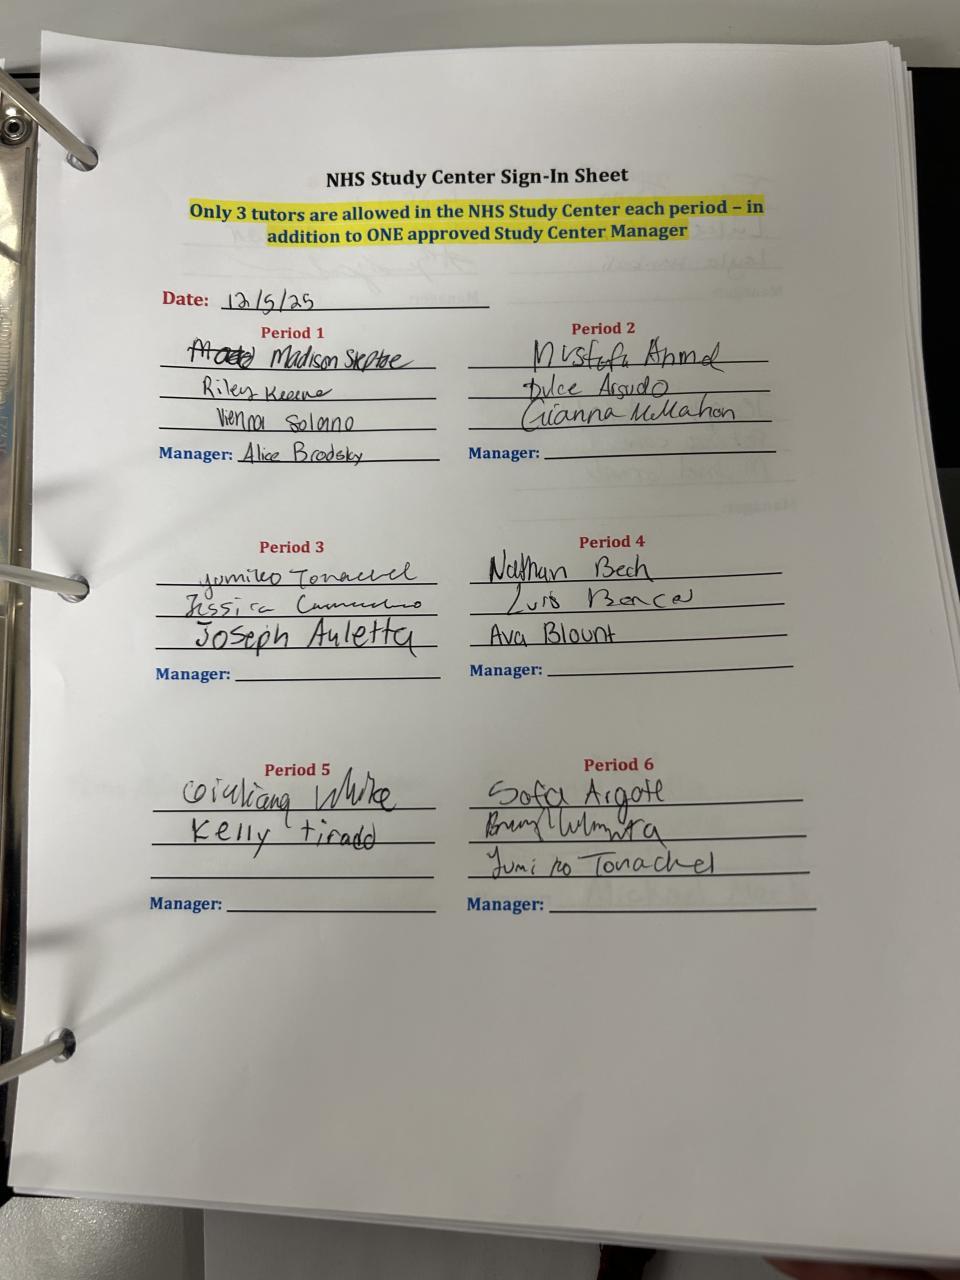 NHS Study Center Sign-In Sheet
Only 3 tutors are allowed in the NHS Study Center each period – in
addition to ONE approved Study Center Manager
Date: 12/5/25
Period 1
Madison Steptoe
Riley Keene
Vienna Solano
Manager: Alice Brodsky
Period 2
Mustafa Ahmed
Dulce Argudo
Gianna McMahon
Manager:
Period 3
Yumiko Tonachel
Jessica Camacho
Joseph Auletta
Manager:
Period 4
Nathan Bech
Luis
Ava Blount
Manager:
Period 5
Giuliana White
Kelly Tirado
Manager:
Period 6
Sofa Argote
Yumiko Tonachel
Manager: